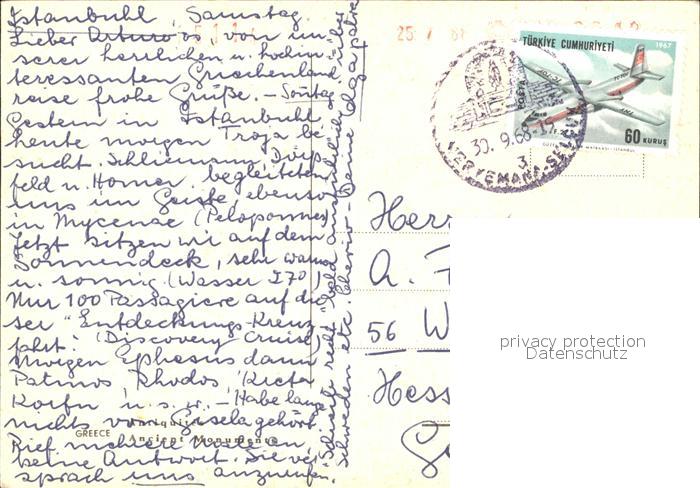 Istanbuhl, Samstag
Lieber Arturo os, von un
serer herrlichen u. hochin
teressanten Griechenland
reise frohe Grüße. – Sontag
Gestern in Istanbuhl,
heute morgen Troja be
sucht. Schliemann, Dörp
feld u. Homer begleiteten
uns im Geiste, ebenso
in Mycenae (Peloponnes)
Jetzt sitzen wir auf dem
Sonnendeck, sehr warm
u. sonnig. (Wasser 270)
Nur 100 Passagiere auf die
ser "Entdeckungs-Kreuz
fahrt". (Discovery Cruise)
Morgen Ephesus dann
Patmos Rhodos, Kreta
Korfu u.s.w. – Habe lange
nichts von Gisela gehört.
Rief mehrere Male an,
keine Antwort. Sie ver
sprach uns anzurufen.
Schreibe recht bald ausführlich über
Schweden etc. Cheerio – Deine
GREECE
Antiquit
Ancient Monuments
25
TÜRKİYE CUMHURİYETİ
1967
POSTA
60 KURUŞ
30.9.68-17
MERYEMANA-SELÇUK
3
Herr
A. F
56 W
Hess
privacy protection
Datenschutz